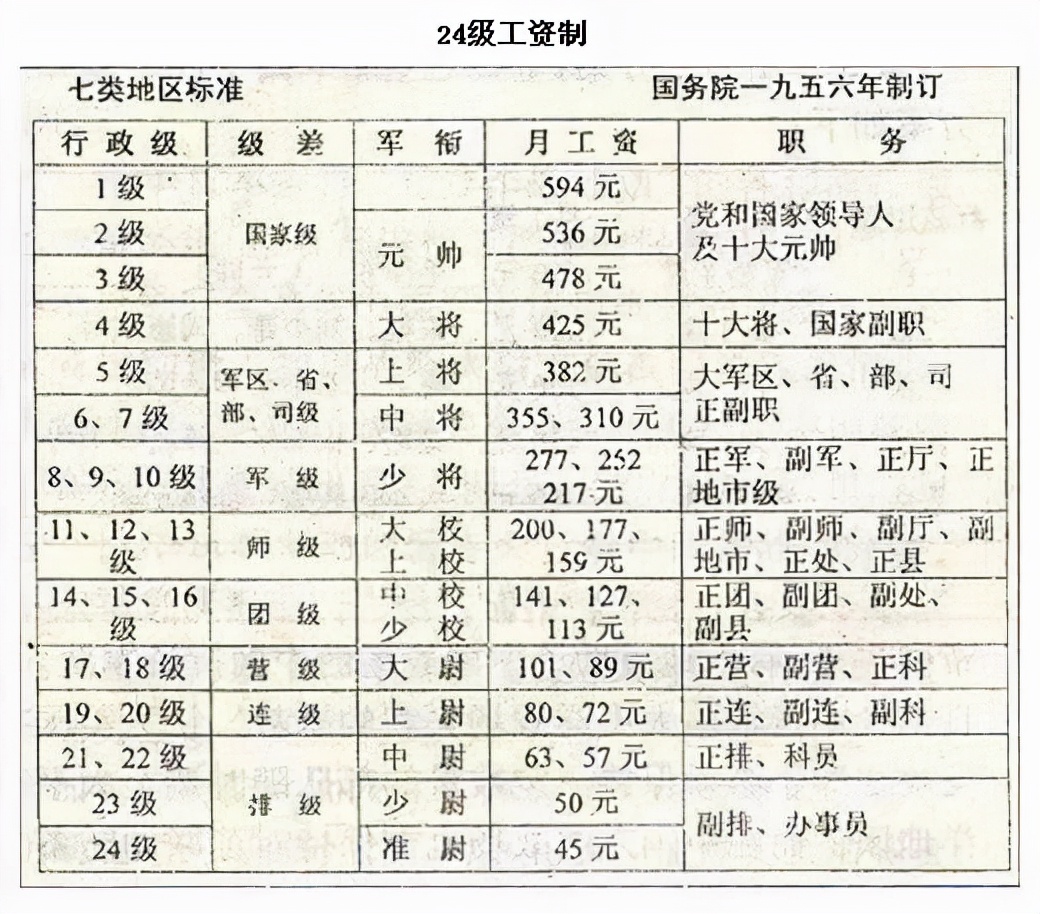 24级工资制
七类地区标准 国务院一九五六年制订
行政级 级差 军衔 月工资 职务
1级 594元
2级 国家级 元帅 536元 党和国家领导人
及十大元帅
3级 478元
4级 大将 425元 十大将、国家副职
5级 军区、省、 上将 382元 大军区、省、部、司
6、7级 部、司级 中将 355、310元 正副职
8、9、10级 军级 少将 277、252 正军、副军、正厅、正
217元 地市级
11、12、13 师级 大校 200、177、 正师、副师、副厅、副
级 上校 159元 地市、正处、正县
14、15、16 团级 中校 141、127、 正团、副团、副处、
级 少校 113元 副县
17、18级 营级 大尉 101、89元 正营、副营、正科
19、20级 连级 上尉 80、72元 正连、副连、副科
21、22级 中尉 63、57元 正排、科员
23级 排级 少尉 50元 副排、办事员
24级 准尉 45元